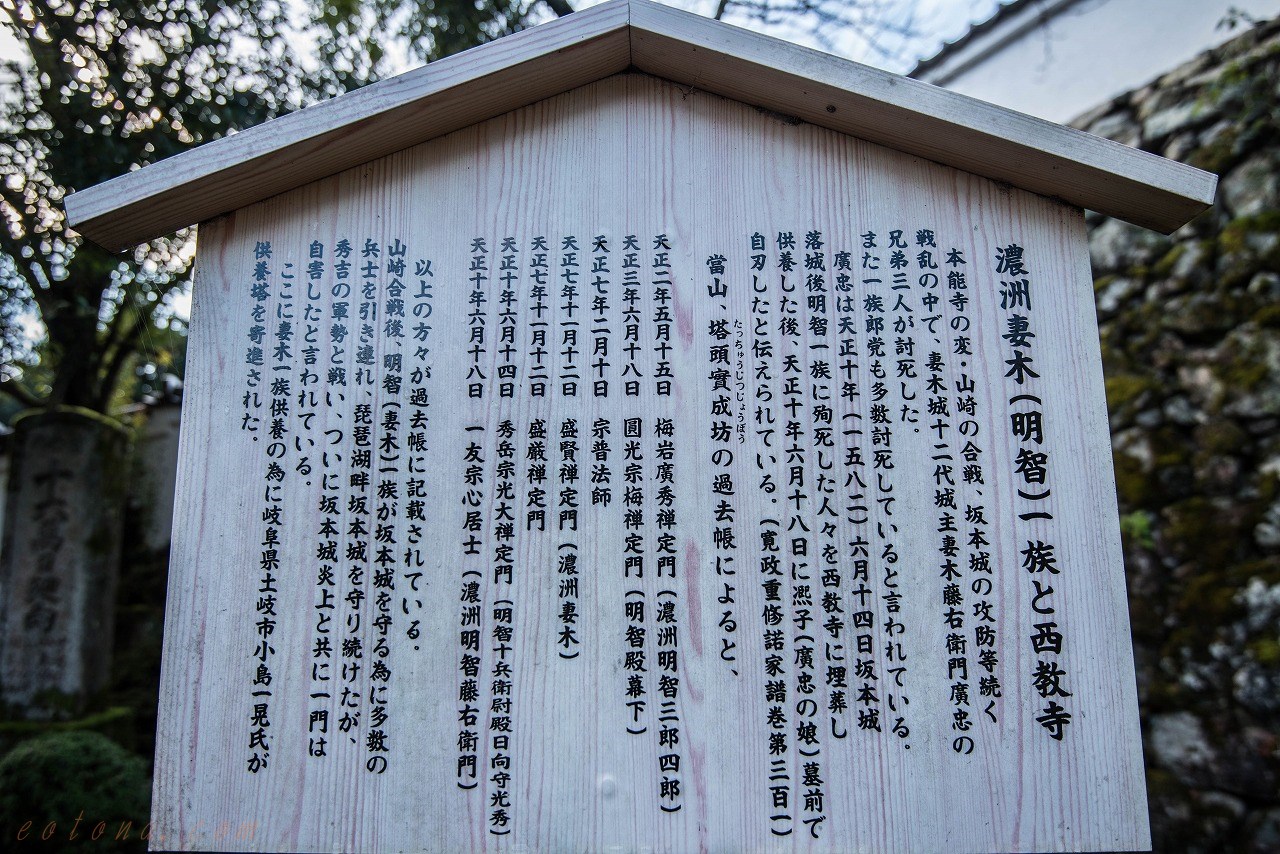 濃洲妻木(明智)一族と西教寺
本能寺の変・山崎の合戦、坂本城の攻防等続く
戦乱の中で、妻木城十二代城主妻木藤右衛門廣忠の
兄弟三人が討死した。
また一族郎党も多数討死していると言われている。
廣忠は天正十年(一五八二)六月十四日坂本城
落城後明智一族に殉死した人々を西教寺に埋葬し
供養した後、天正十年六月十八日に凞子(廣忠の娘)墓前で
自刃したと伝えられている。(寛政重修諾家譜巻第三百一)
當山、塔頭實成坊の過去帳によると、
たっちゅうじつじょうぼう
天正二年五月十五日 梅岩廣秀禅定門(濃洲明智三郎四郎)
天正三年六月十八日 圓光宗梅禅定門(明智殿幕下)
天正七年二月十日 宗普法師
天正七年十一月十二日 盛賢禅定門(濃洲妻木)
天正七年十一月十二日 盛厳禅定門
天正十年六月十四日 秀岳宗光大禅定門(明智十兵衛尉殿日向守光秀)
天正十年六月十八日 一友宗心居士(濃洲明智藤右衛門)
以上の方々が過去帳に記載されている。
山崎合戦後、明智(妻木)一族が坂本城を守る為に多数の
兵士を引き連れ、琵琶湖畔坂本城を守り続けたが、
秀吉の軍勢と戦い、ついに坂本城炎上と共に一門は
自害したと言われている。
ここに妻木一族供養の為に岐阜県土岐市小島一晃氏が
供養塔を寄進された。